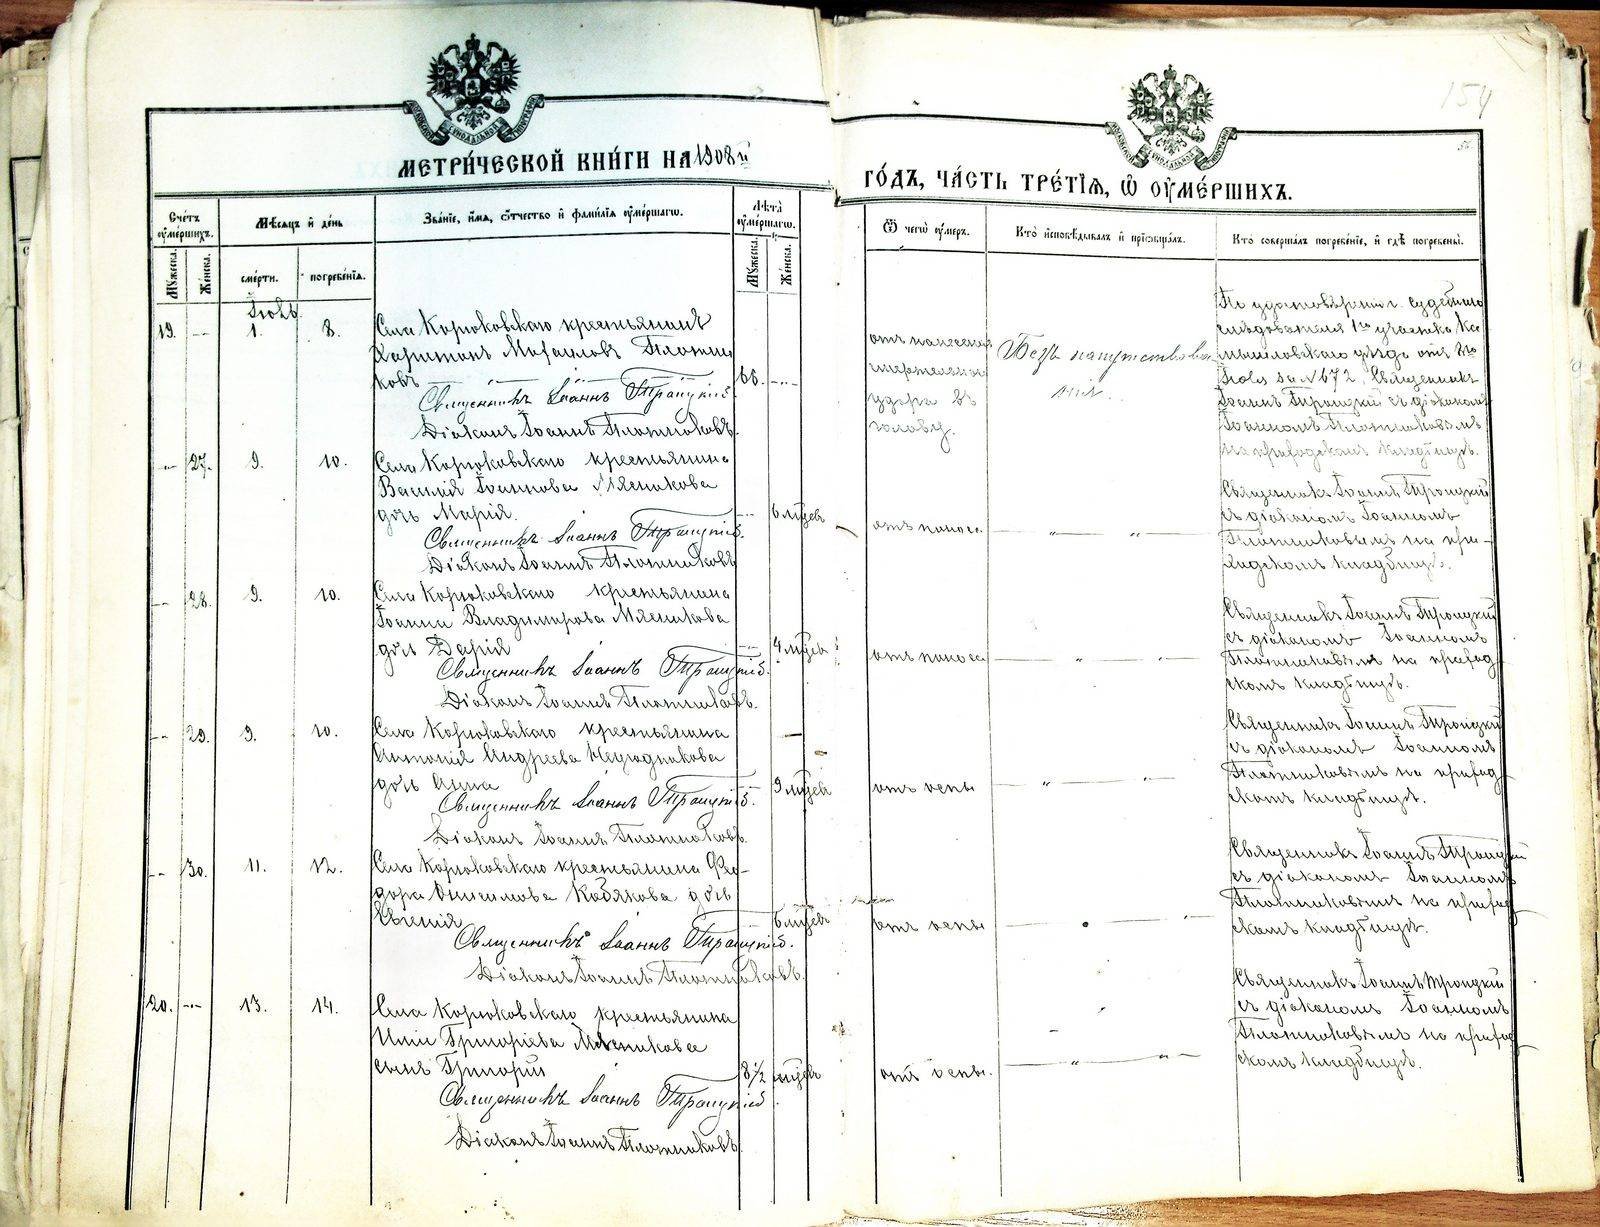 154
МЕТРИ́ЧЕСКОЙ КНИ́ГИ НА 1908й
ГО́ДЪ, ЧА́СТЬ ТРЕ́ТІѦ, Ѿ ОУМЕ́РШИХЪ.
Сче́тъ оуме́ршихъ.
Мѣсяцъ и де́нь
Зва́ніе, и́мя, ѻ́тчество и фами́лія оуме́ршагѡ.
Лѣта̀ оуме́ршагѡ.
Ѿ чегѡ̀ оу́меръ.
Кто̀ и҆сповѣ́дывалъ и пріѡбща́лъ.
Кто̀ соверша́лъ погребе́ніе, и гдѣ̀ погребены̀.
Мꙋжеска.
Же́нска.
сме́рти.
погребе́нія.
Мꙋжеска.
Же́нска.
Іюль
19. 1. 8.
Села Корюковскаго крестьянинъ
Харитонъ Михаиловъ Плотни
ковъ
66.
Священникъ Іоаннъ Троицкій.
Діаконъ Іоаннъ Плотниковъ.
отъ нанесен
смертельнаго
удара въ
голову.
Безъ напутствова
нія.
По удостовѣренію г. судебнаго
слѣдователя 1го участка Ка
мышловскаго уѣзда отъ 8го
Іюля за №672, Священникъ
Іоаннъ Троицкій съ діакономъ
Іоанномъ Плотниковымъ
на приходскомъ кладбищѣ.
27. 9. 10.
Села Корюковскаго крестьянина
Василія Іоаннова Мясникова
дочь Марія.
6 мцевъ
Священникъ Іоаннъ Троицкій.
Діаконъ Іоаннъ Плотниковъ
отъ поноса
Священникъ Іоаннъ Троицкій
съ діакономъ Іоанномъ
Плотниковымъ на при-
ходскомъ кладбищѣ.
28. 9. 10.
Села Корюковскаго крестьянина
Іоанна Владимірова Мясникова
дочь Дарія
4 мцевъ
Священникъ Іоаннъ Троицкій.
Діаконъ Іоаннъ Плотниковъ.
отъ поноса
Священникъ Іоаннъ Троицкій
съ діакономъ Іоанномъ
Плотниковымъ на приход
скомъ кладбищѣ.
29. 9. 10.
Села Корюковскаго крестьянина
Антонія Андреева
дочь Анна
9 мцевъ
Священникъ Іоаннъ Троицкій.
Діаконъ Іоаннъ Плотниковъ.
отъ оспы
Священникъ Іоаннъ Троицкій
съ діакономъ Іоанномъ
Плотниковымъ на приход
скомъ кладбищѣ.
30. 11. 12.
Села Корюковскаго крестьянина Фео-
дора Анисимова Кобякова дочь
Евгенія
6 мцевъ
Священникъ Іоаннъ Троицкій.
Діаконъ Іоаннъ Плотниковъ.
отъ оспы
Священникъ Іоаннъ Троицкій
съ діакономъ Іоанномъ
Плотниковымъ на приход
скомъ кладбищѣ.
20. 13. 14.
Села Корюковскаго крестьянина
Григоріева Мясникова
сынъ Григорій
8 1/2 мцевъ
Священникъ Іоаннъ Троицкій
Діаконъ Іоаннъ Плотниковъ.
отъ оспы.
Священникъ Іоаннъ Троицкій
съ діакономъ Іоанномъ
Плотниковымъ на приход
скомъ кладбищѣ.